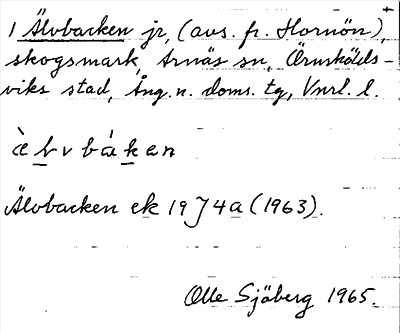 1 Älvbacken jr, (avs. fr. Hornön),
skogsmark, Arnäs sn, Örnskölds-
viks stad, Ång. n. doms. tg, Vnrl. l.
ὲ l v b ὰ k e n
Älvbacken ek 19 J 4a (1963).
Olle Sjöberg 1965.